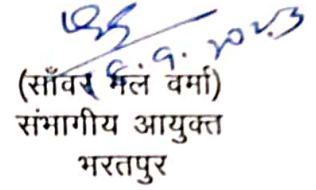 6.9.2023
(साँवर मल वर्मा)
संभागीय आयुक्त
भरतपुर